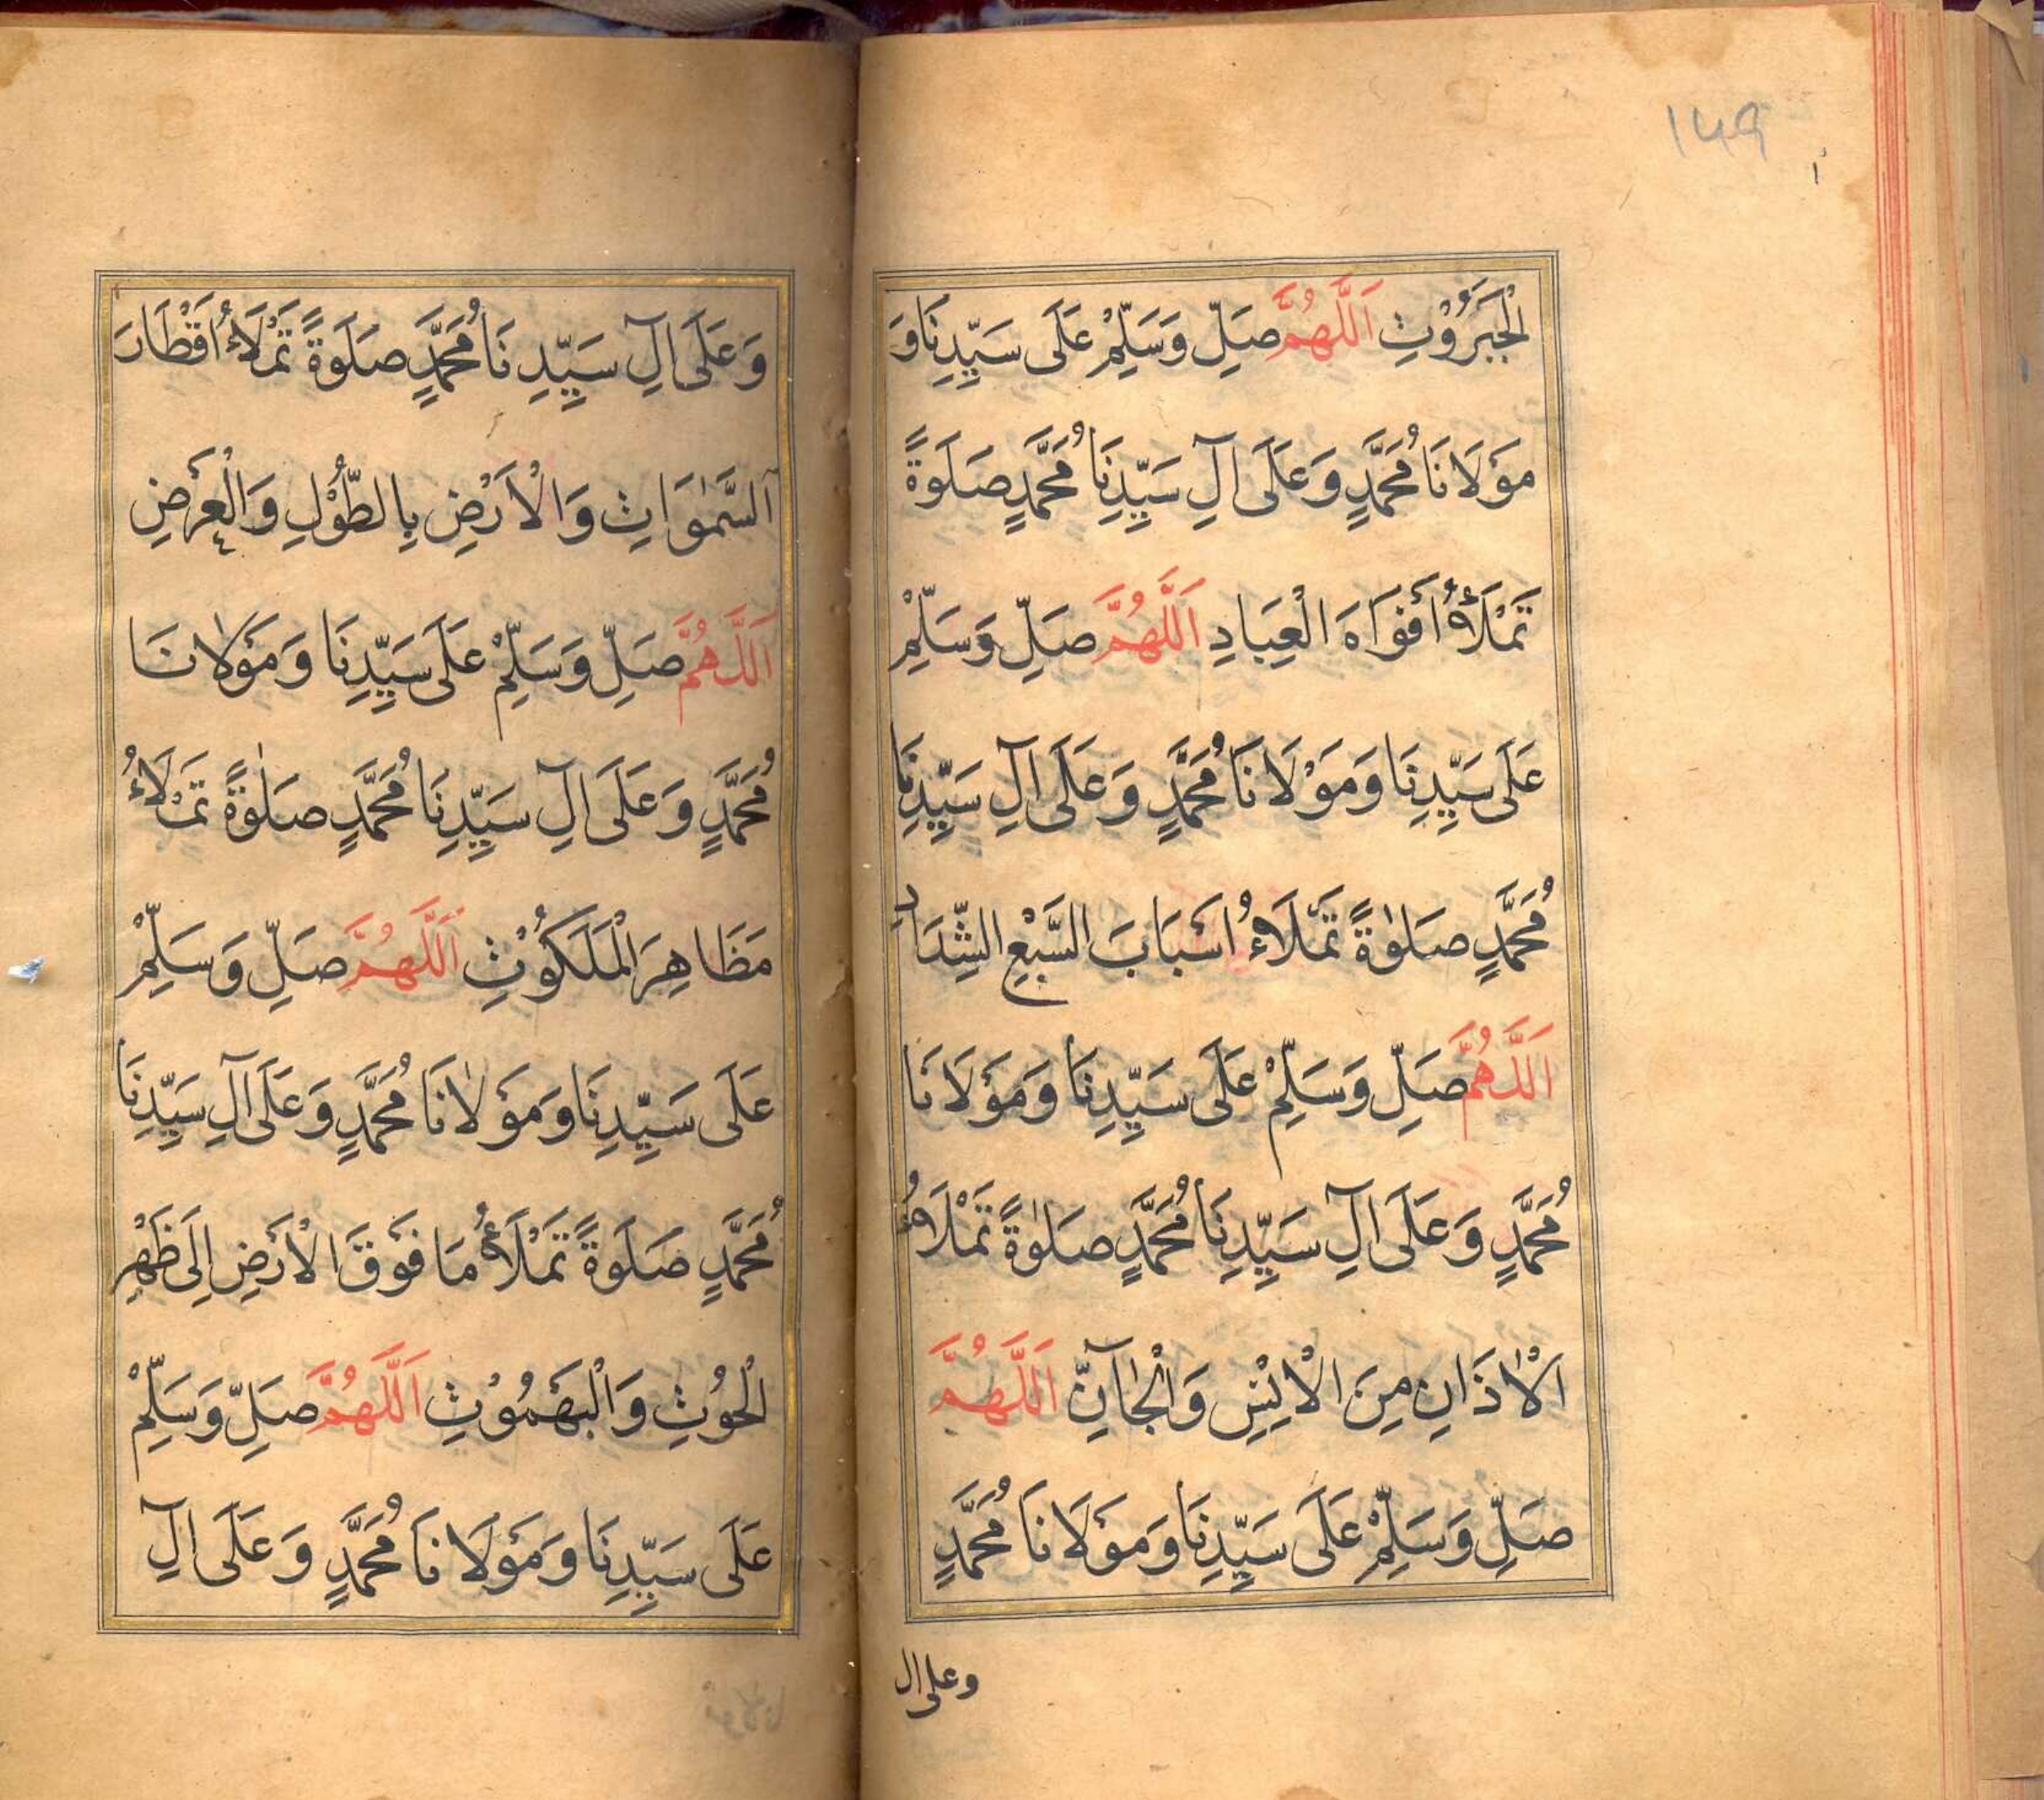 ١٤٩
الْجَبَرُوْتِ اَللّٰهُمَّ صَلِّ وَسَلِّمْ عَلَى سَيِّدِنَا وَ
مَوْلَانَا مُحَمَّدٍ وَعَلَى اٰلِ سَيِّدِنَا مُحَمَّدٍ صَلَوةً
تَمْلَأُ أَفْوَاهَ الْعِبَادِ اَللّٰهُمَّ صَلِّ وَسَلِّمْ
عَلَى سَيِّدِنَا وَمَوْلَانَا مُحَمَّدٍ وَعَلَى اٰلِ سَيِّدِنَا
مُحَمَّدٍ صَلٰوةً تَمْلَاءُ اَسْبَابَ السَّبْعِ الشِّدَادِ
اَللّٰهُمَّ صَلِّ وَسَلِّمْ عَلَى سَيِّدِنَا وَمَوْلَانَا
مُحَمَّدٍ وَعَلَى اٰلِ سَيِّدِنَا مُحَمَّدٍ صَلٰوةً تَمْلَاءُ
اَلْاٰذَانِ مِنَ الْاِنْسِ وَالْجَآنِّ اَللّٰهُمَّ
صَلِّ وَسَلِّمْ عَلَى سَيِّدِنَا وَمَوْلَانَا مُحَمَّدٍ
وعلى ال
وَعَلَى اٰلِ سَيِّدِنَا مُحَمَّدٍ صَلَوةً تَمْلَاءُ اَقْطَارَ
اَلسَّمٰوَاتِ وَالْاَرْضِ بِالطُّوْلِ وَالْعَرْضِ
اَللّٰهُمَّ صَلِّ وَسَلِّمْ عَلَى سَيِّدِنَا وَمَوْلَانَا
مُحَمَّدٍ وَعَلَى اٰلِ سَيِّدِنَا مُحَمَّدٍ صَلٰوةً تَمْلَاءُ
مَظَاهِرَ الْمَلَكُوْتِ اَللّٰهُمَّ صَلِّ وَسَلِّمْ
عَلَى سَيِّدِنَا وَمَوْلَانَا مُحَمَّدٍ وَعَلَى اٰلِ سَيِّدِنَا
مُحَمَّدٍ صَلَوةً تَمْلَأُ مَا فَوْقَ الْاَرْضِ اِلَى ظَهْرِ
الْحُوْتِ وَالْبَهَمُوْتِ اَللّٰهُمَّ صَلِّ وَسَلِّمْ
عَلَى سَيِّدِنَا وَمَوْلَانَا مُحَمَّدٍ وَعَلَى اٰلِ